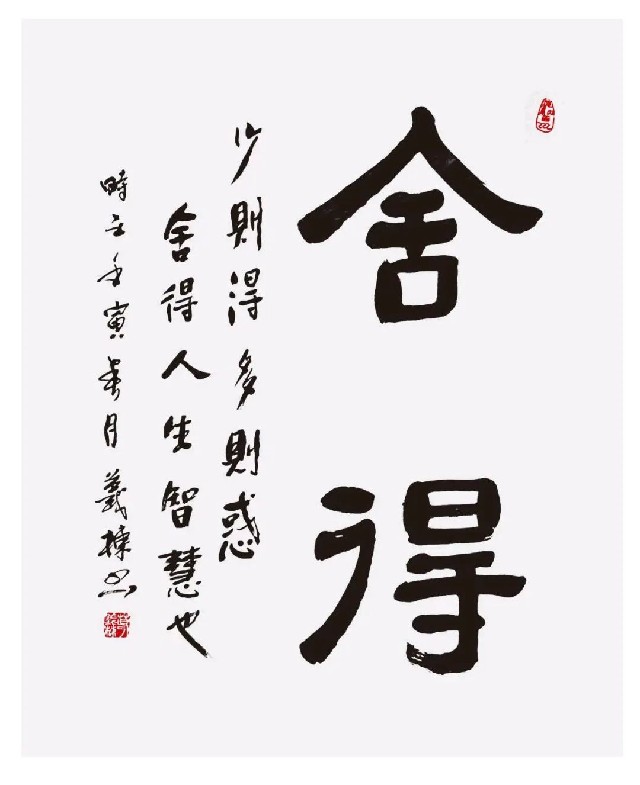 舍得
少則得多則惑
舍得人生智慧也
時在壬寅春月義棟書